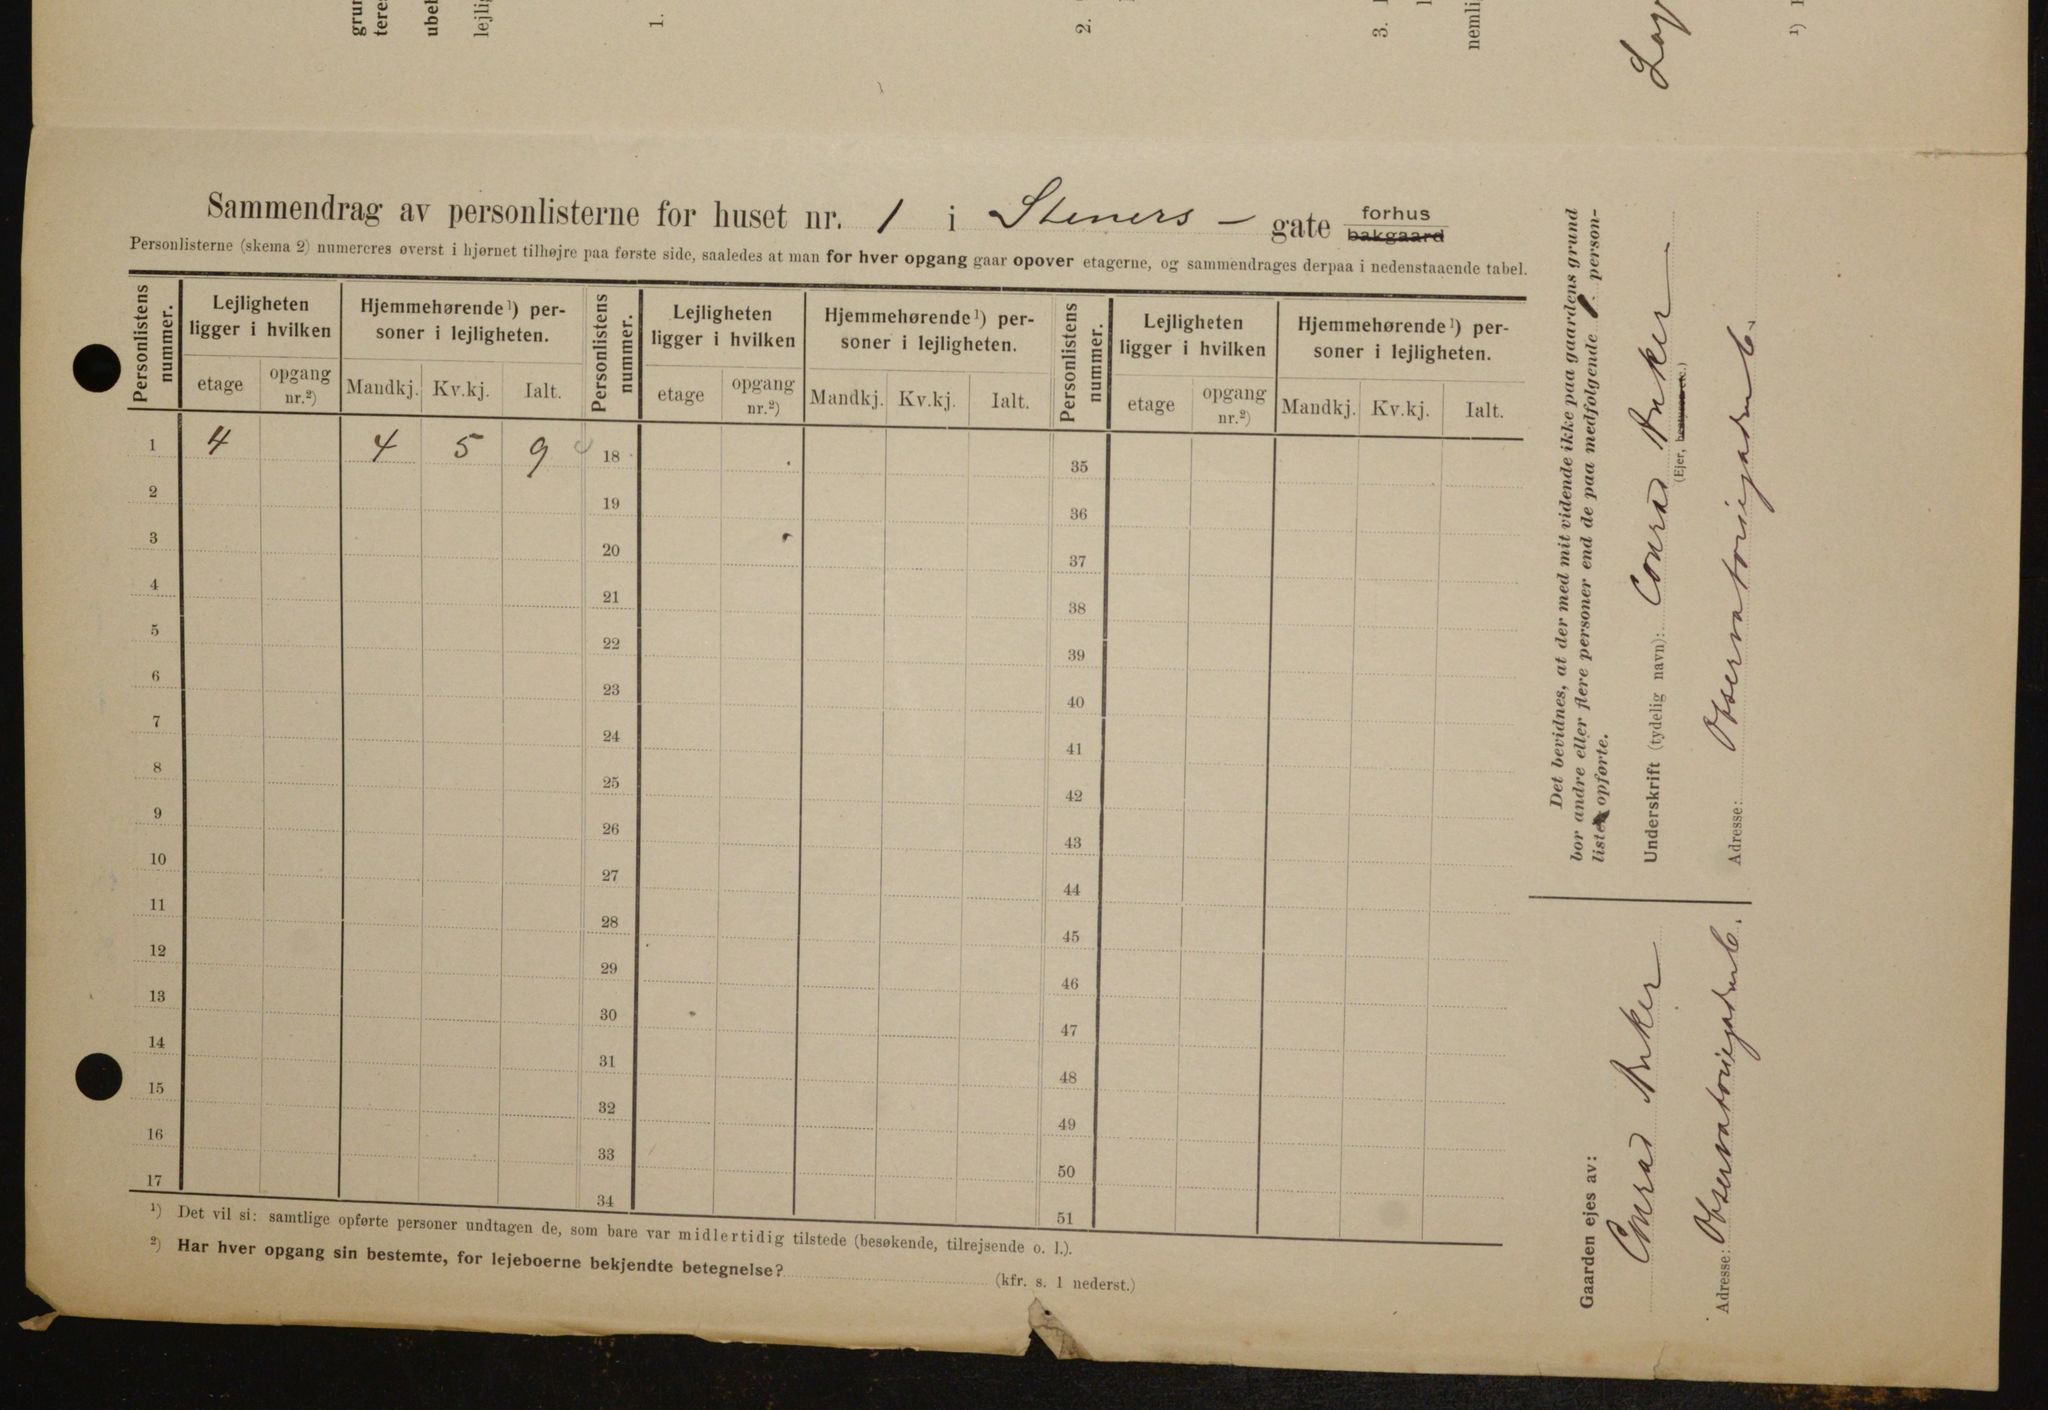 grun
teres
ubel
lejlig
1.
2.
3.
nemli
1)
Sammendrag av personlisterne for huset nr. 1 i Steners - gate forhus bakgaard
Personlisterne (skema 2) numereres øverst i hjørnet tilhøjre paa første side, saaledes at man for hver opgang gaar opover etagerne, og sammendrages derpaa i nedenstaaende tabel.
Personlistens nummer. Lejligheten ligger i hvilken Hjemmehørende¹) personer i lejligheten. Personlistens nummer. Lejligheten ligger i hvilken Hjemmehørende¹) personer i lejligheten. Personlistens nummer. Lejligheten ligger i hvilken Hjemmehørende¹) personer i lejligheten.
etage opgang nr.²) Mandkj. Kv.kj. Ialt. etage opgang nr.²) Mandkj. Kv.kj. Ialt. etage opgang nr.²) Mandkj. Kv.kj. Ialt.
1 4 4 5 9 18 35
2 19 36
3 20 37
4 21 38
5 22 39
6 23 40
7 24 41
8 25 42
9 26 43
10 27 44
11 28 45
12 29 46
13 30 47
14 31 48
15 32 49
16 33 50
17 34 51
¹) Det vil si: samtlige opførte personer undtagen de, som bare var midlertidig tilstede (besøkende, tilrejsende o. l.).
²) Har hver opgang sin bestemte, for lejeboerne bekjendte betegnelse? (kfr. s. 1 nederst.)
Det bevidnes, at der med mit vidende ikke paa gaardens grund
bor andre eller flere personer end de paa medfølgende 1 person-
listen opførte.
Underskrift (tydelig navn): Conrad Anker
(Ejer, bestyrer etc.)
Adresse: Observatoriegaden 6.
Gaarden ejes av:
Conrad Anker
Adresse: Observatoriegaden 6.